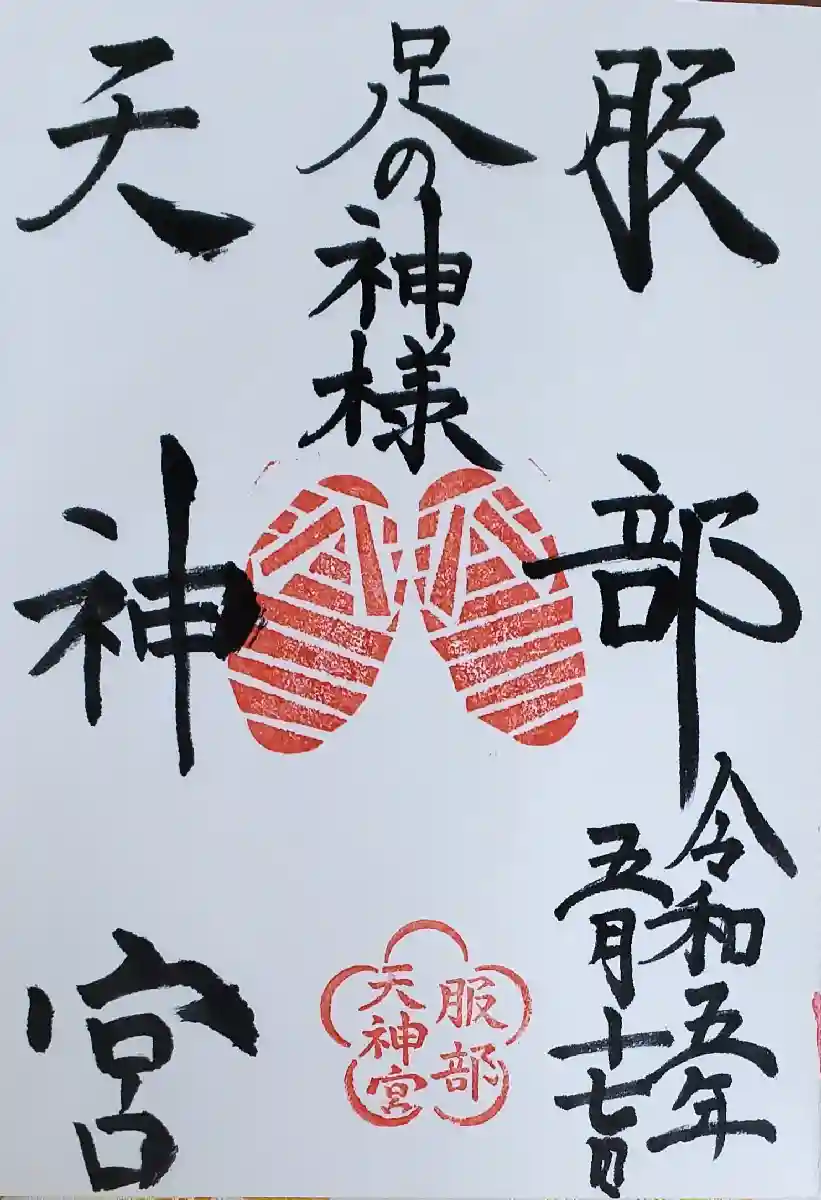 服部
令和五年
五月十七日
足の神様
天神宮
服部
天神宮